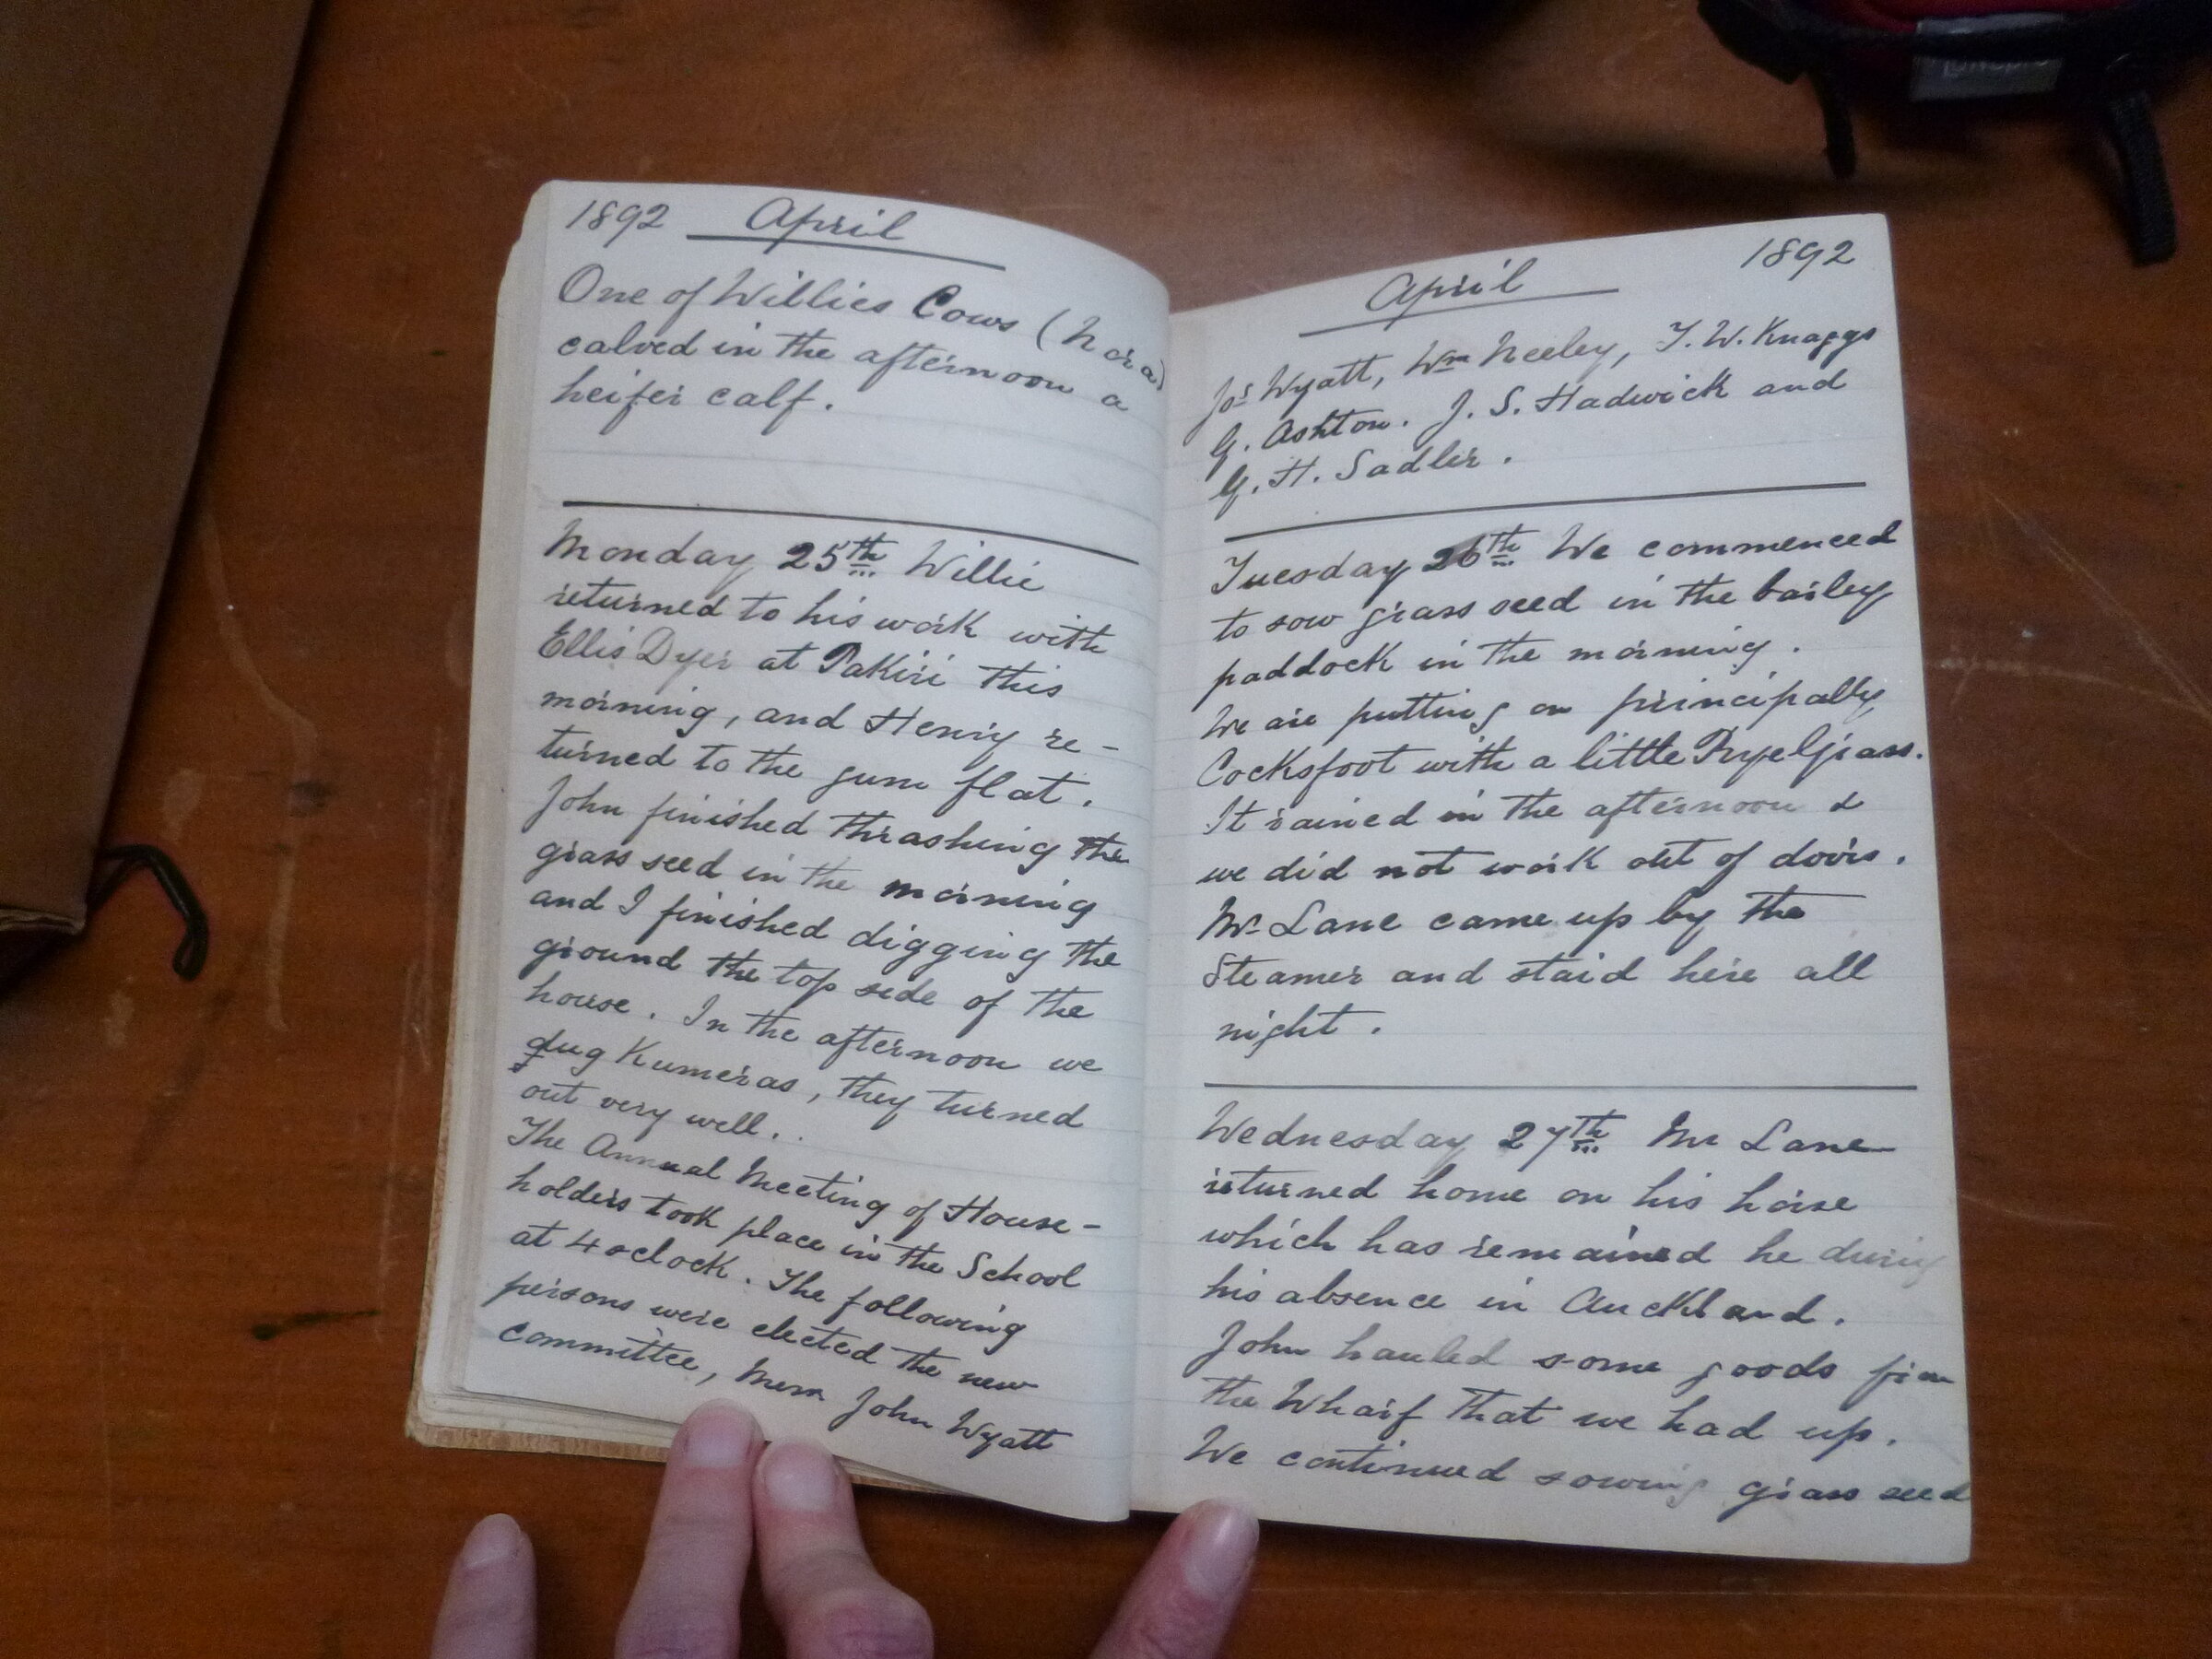 1892 April
One of Willies Cows (Nora)
calved in the afternoon a
heifer calf.
Monday 25th Willie
returned to his work with
Ellis Dyer at Pakiri this
morning, and Henry re-
turned to the gum flat.
John finished thrashing the
grass seed in the morning
and I finished digging the
ground the top side of the
house. In the afternoon we
dug Kumeras, they turned
out very well.
The Annual Meeting of House-
holders took place in the School
at 4 oclock. The following
persons were elected the new
committee, Messrs John Wyatt
April 1892
Jos Wyatt, Wm Neeley, T. W. Knaggs
G. Ashton. J. S. Hadwick and
G. H. Sadler.
Tuesday 26th We commenced
to sow grass seed in the barley
paddock in the morning.
We are putting on principally
Cocksfoot with a little Rye Grass.
It rained in the afternoon &
we did not work out of doors.
Mr Lane came up by the
Steamer and staid here all
night.
Wednesday 27th Mr Lane
returned home on his horse
which has remained he during
his absence in Auckland.
John hauled some goods from
the Wharf that we had up.
We continued sowing grass seed